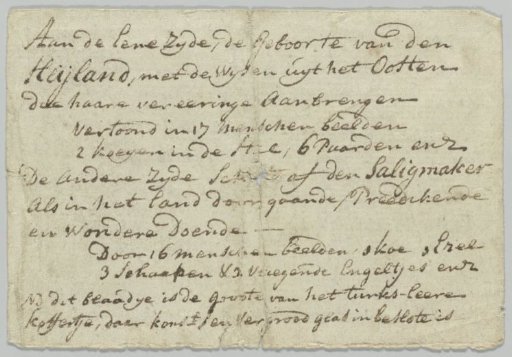 Aan de Eene Zyde, de Geboorte van den
Heyland, met de Wysen uyt het Oosten
die haare vereeringe Aanbrengen
vertoond in 17 menschen beelden
2 koeyen in de Stal, 6 Paarden enz
De Andere Zyde of den Saligmaker
Als in het Land doorgaande, Predickende
en Wondere Doende
Door 16 menschen beelden, 1 koe, 1 Ezel
3 Schaapen & 2 vliegende Engeltjes enz
NB dit blaadje is de groote van het turks-leere
koffertje, daar konst en vergrood glas in beslote is